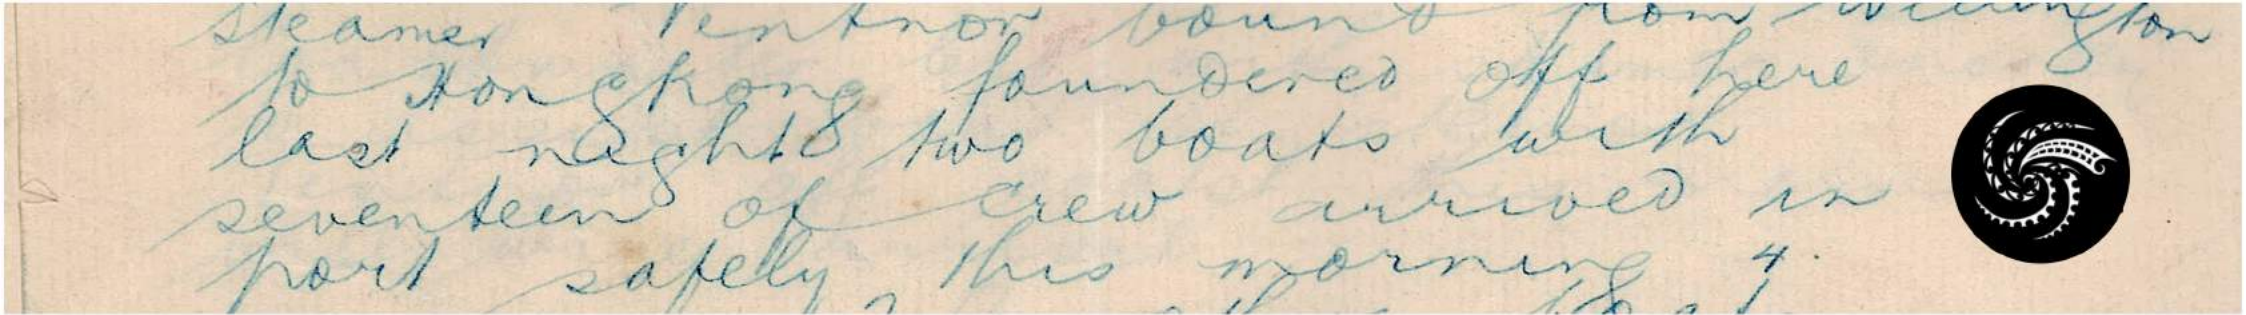 steamer Ventnor bound from Wellington
to Hongkong foundered off here
last night & two boats with
seventeen of crew arrived in
port safely this morning 4.